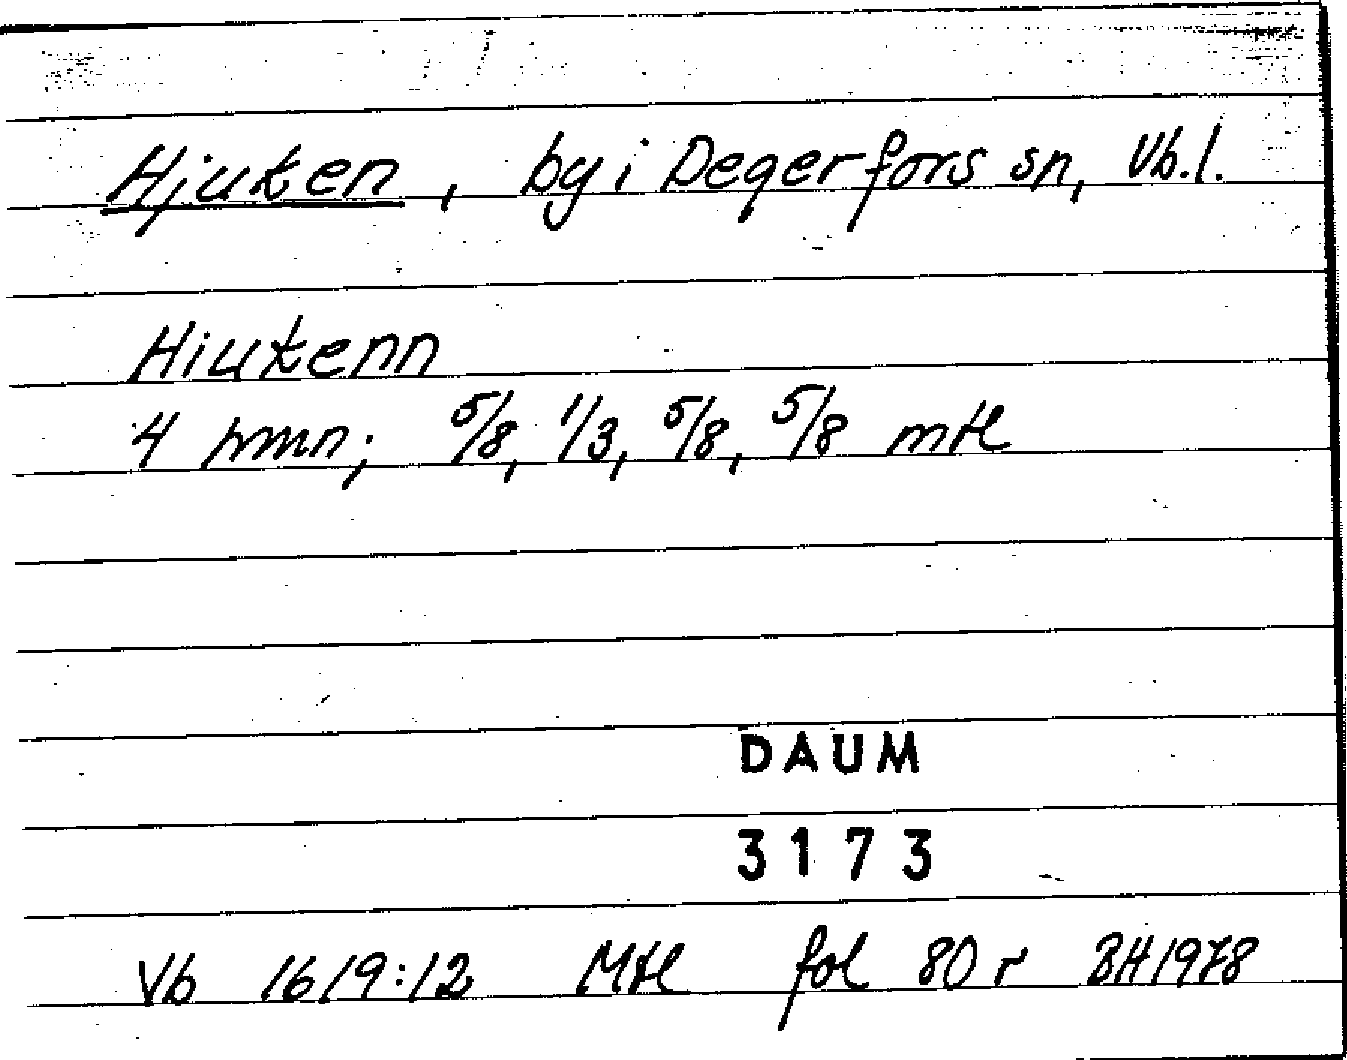 Hjuken, by i Degerfors sn, Vb.l.
Hiukenn
4 hmn; 5/8, 1/3, 5/8, 5/8 mtl
DAUM
3173
Vb 1619:12 Mtl fol 80 r BH1978